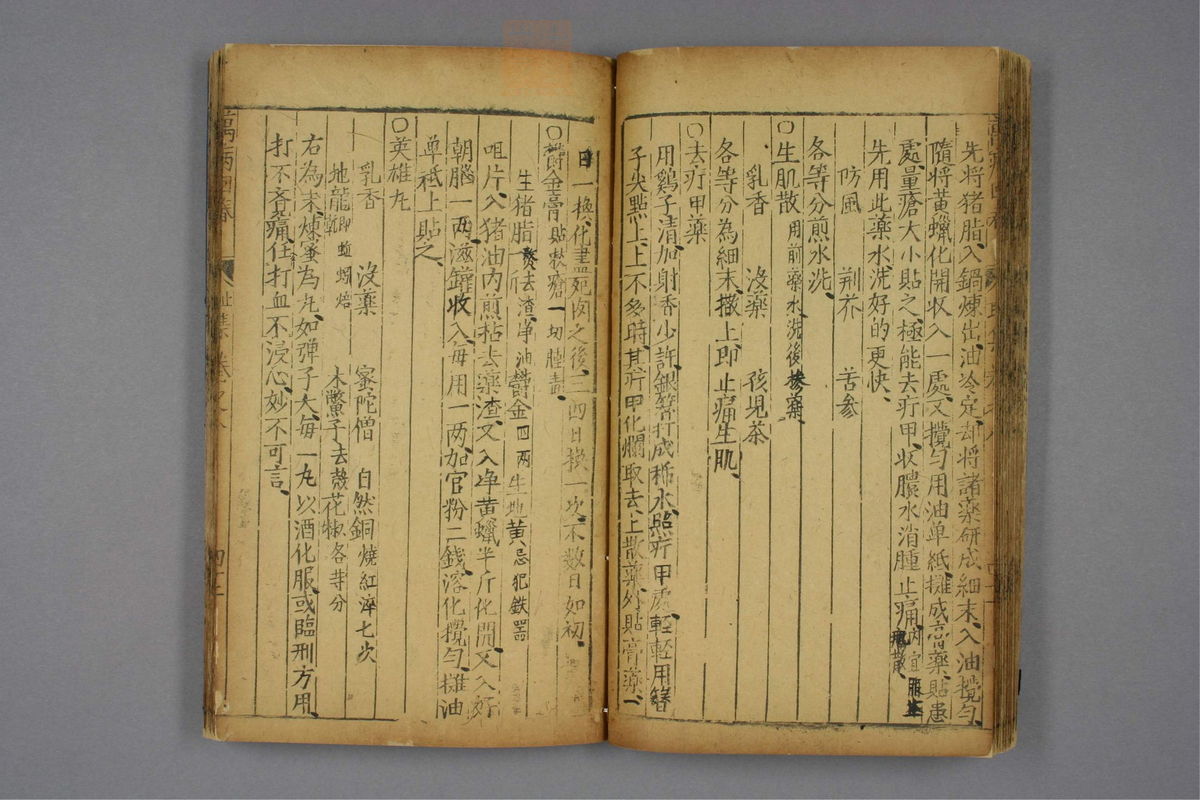 先將猪脂入鍋煉出油冷定却將諸薬研成細末入油攪勻
隨將黃蠟化開收入一處又攪勻用油单紙攤成膏薬貼患
處量瘡大小貼之極能去疔甲状膿水消腫止痛内宜服
先用此薬水洗好的更快
防風 荆芥 苦參
各等分煎水洗
〇生肌散用前薬水洗後摻薬
乳香 沒薬 孩児茶
各等分為細末撒上即止痛生肌
〇去疔甲薬
用鷄子清加射香少許銀簪打成稀水照疔甲處輕輕用簪
子尖點上上不多時其疔甲化爛取去上散薬外貼膏薬一
日一換化盡死肉之後三四日換一次不数日如初
〇欝金膏貼瘡一切腫毒
生猪脂一斤熬去渣净油欝金四两生地黃忌犯鉄器
咀片入猪油内煎枯去薬渣又入净黃蠟半斤化開又入好
朝腦一两滋罐收入每用一两加官粉二錢溶化攪勻攤油
单紙上貼之
〇英雄丸
乳香 沒薬 蜜陀僧 自然銅燒紅淬七次
地龍即蚯蚓焙乾 木鱉子去殻花椒各等分
右為末煉蜜為丸如弹子大每一丸以酒化服或臨刑方用
打不痛住打血不浸心妙不可言
萬病回春
四二